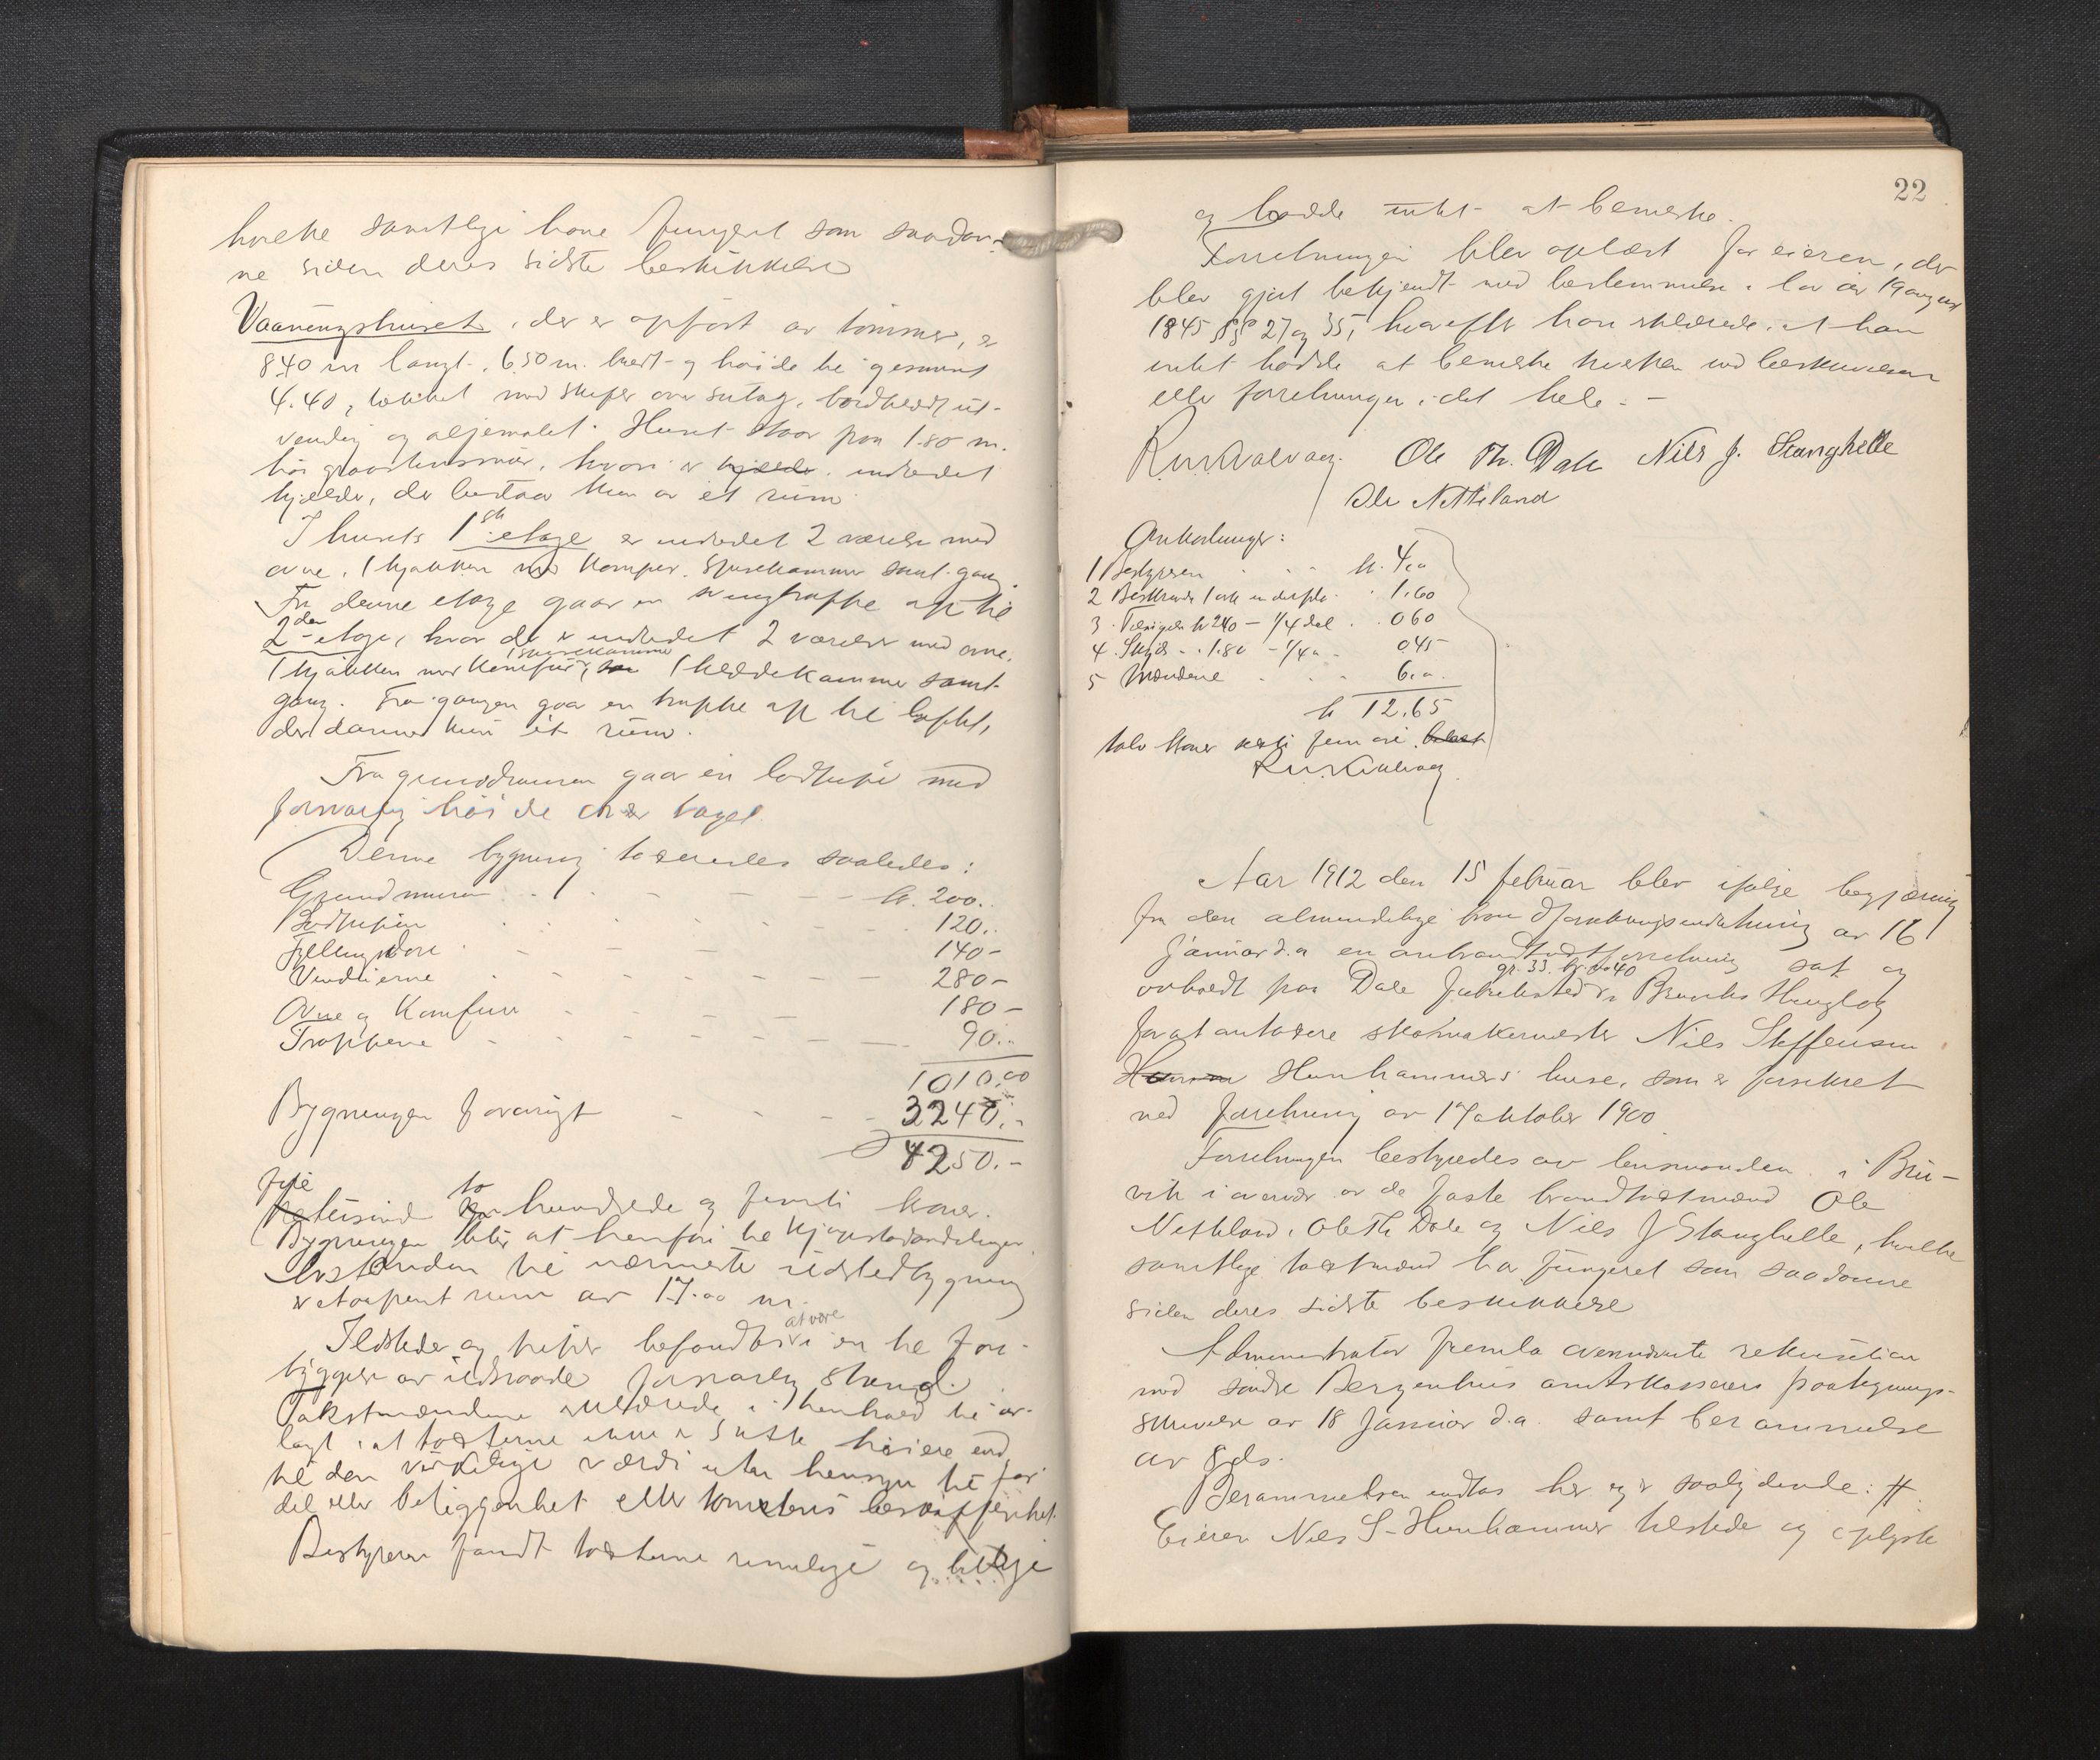 hvilke samtlige have fungeret som saadan-
ne siden deres sidste beskikkelse
Vaaningshuset, der er opført av tømmer, er
8.40 m langt, 6.50 m. bredt og høide til gesimns
4.40, tækket med skifer over sutag, bordklædt ut-
vendig og oljemalet. Huset staar paa 1.80 m.
høi graastensmur, hvori er kjelder indredet
kjelder, der bestaar kun av et rum.
I husets 1ste etage er indredet 2 værelser med
ovne, 1 kjøkken med komfyr, spisekammer samt gang.
Fra denne etage gaar en svingtrappe op til
2den etage, hvor der er indredet 2 værelser med ovne,
1 kjøkken med komfur, 1 spisekammer 1 klædekammer samt
gang. Fra gangen gaar en trappe op til loftet,
der danner kun et rum.
Fra grundmuren gaar en lodpipe med
forsvarlig høide over taget.
Denne bygning takseredes saaledes:
Grundmuren kr. 200..
Lodpipen 120..
Fyllingsdøre 140-
Vinduerne 280-
Ovne og Komfurer 180-
Trapperne 90..
1010.00
Bygningen forøvrigt 3240.-
4250.-
fire tusind to hundrede og femti kroner.
Bygningen blir at henføre til kjøpstadavdelingen.
Avstanden til nærmeste ildstedbygning
er etaapent rum av 17.00 m.
Ildsteder og piper befandtes at være i en til fore-
byggelse av ildsvaade forsvarlig stand.
Takstmændene erklærede, i henhold til av-
lagt, at taksterne ikke er satte høiere end
til den virkelige værdi uten hensyn til for-
del eller beliggenhet eller tomtens beskaffenhet.
Bestyreren fandt taksterne rimelige og billige
22
og hadde intet at bemerke.
Forretningen blev oplæst for eieren, der
blev gjort bekjendt med bestemmelse i lov av 19 august
1845 §§ 27 og 35, hvorefter han erklærede, at han
intet hadde at bemerke hverken ved beskrivelsen
eller forretningen i det hele. -
Ole Th. Dale Nils J. Stanghelle
Ole Netteland
Ankostninger:
1 Bestyreren kr. 4.00
2 Beskrevne 1 ark 1.60
3 kr 2.40 - 1/4 del 0.60
4. Skyds 1.80 - 1/4 0.45
5 Mændene 6.00
kr 12.65
tolv kroner seksti fem øre
Aar 1912 den 15 februar blev ifølge begjæring
fra den almindelige brandforsikringsindretning av 16
januar d.a. en ombrandtakstforretning sat og
gr. 33. br. no 40
avholdt paa Dale Fabriksted i Bruviks Thinglag
for at omtaksere skomakermester Nils Steffensen
Hunhammers huse, som er forsikret
ved forretning av 17 oktober 1900
Forretningen bestyredes av lensmanden i Bru-
vik i overvær av de faste brandtakstmænd Ole
Nettland, Ole Th Dale og Nils J Stanghelle, hvilke
samtlige takstmænd har fungeret som saadanne
siden deres sidste beskikkelse
Administrator fremla ovennævnte rekvisition
med søndre Bergenhus amtskasserers paategnings-
skrivelse av 18 januar d.a. samt berammelse
av 8 ds.
Berammelsen indtas her og er saalydende: #
Eieren Nils S. Hunhammer tilstede og oplyste